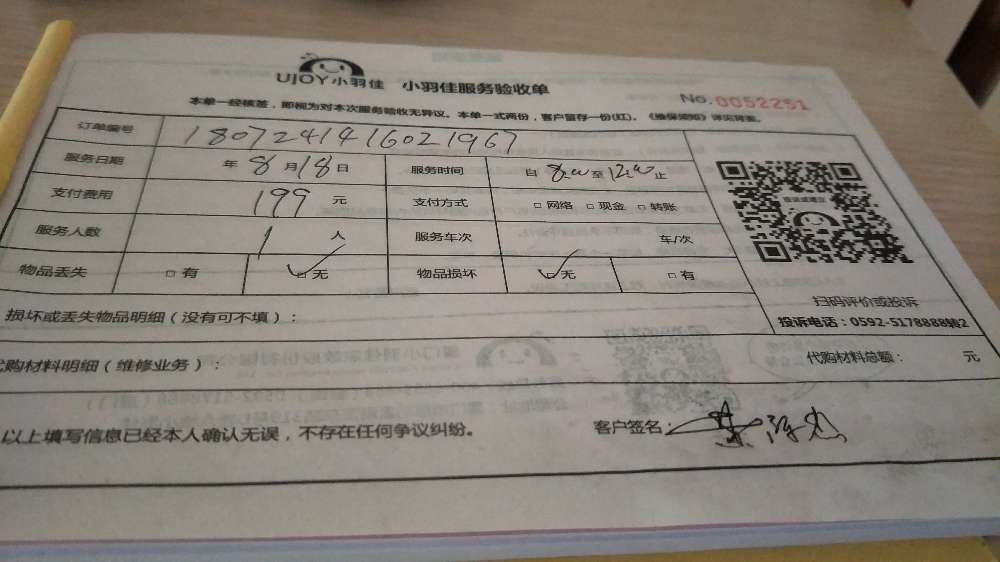 UJOY小羽佳 小羽佳服务验收单
No.0052251
本单一经核签，即视为对本次服务验收无异议。本单一式两份，客户留存一份(红)。《维保须知》详见背面。
订单编号 1807241416021967
服务日期 年 8月18日 服务时间 自 8:00 至 12:00 止
支付费用 199 元 支付方式 □网络 □现金 □转账
服务人数 1 人 服务车次 车/次
物品丢失 □有 ☑无 物品损坏 ☑无 □有
投诉或建议
扫码评价或投诉
投诉电话：0592-5178888转2
损坏或丢失物品明细（没有可不填）：
代购材料明细（维修业务）： 代购材料总额： 元
以上填写信息已经本人确认无误，不存在任何争议纠纷。 客户签名：